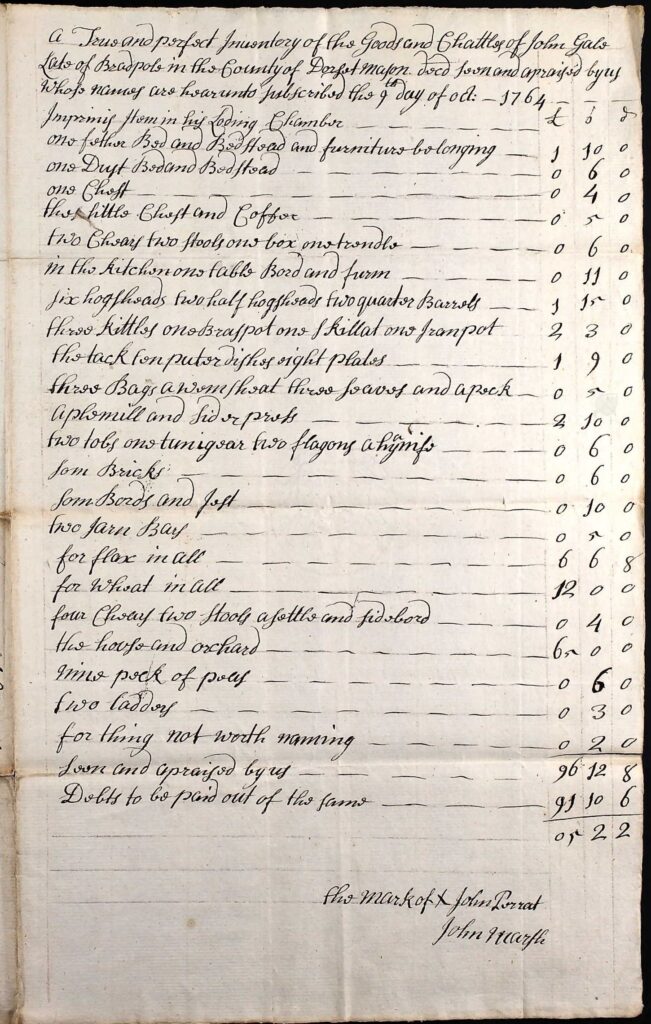 A True and perfect Inventory of the Goods and Chattles of John Gale
Late of Bradpole in the County of Dorset mason decd seen and apraised by us
Whose names are hearunto subscribed the 9th day of oct: – 1764
Imprimis Item in his Loding Chamber £ s d
one fether Bed and Bedstead and furniture belonging 1 10 0
one Dust Bed and Bedstead 0 6 0
one Chest 0 4 0
little Chest and Coffer 0 5 0
two Chears two stools one box one trendle 0 6 0
in the kitchen one table Bord and furm 0 11 0
six hogsheads two half hogsheads two quarter Barrels 1 15 0
three kittles one Braspot one skillat one Iranpot 2 3 0
the tack ten puter dishes eight plates 1 9 0
three Bags a wemsheat three seaves and a peck 0 5 0
aplemill and siderpress 2 10 0
two tobs one tunigear two flagons a 0 6 0
som Bricks 0 6 0
som Bords and Jest 0 10 0
two Iarn Bars 0 5 0
for flax in all 6 6 8
for Wheat in all 12 0 0
four Chears two stools a settle and sidebord 0 4 0
the house and orchard 65 0 0
nine peck of peas 0 6 0
two ladders 0 3 0
for thing not worth naming 0 2 0
seen and apraised by us 96 12 8
Debts to be paid out of the same 91 10 6
05 2 2
the mark of X John Perrat
John Marsh